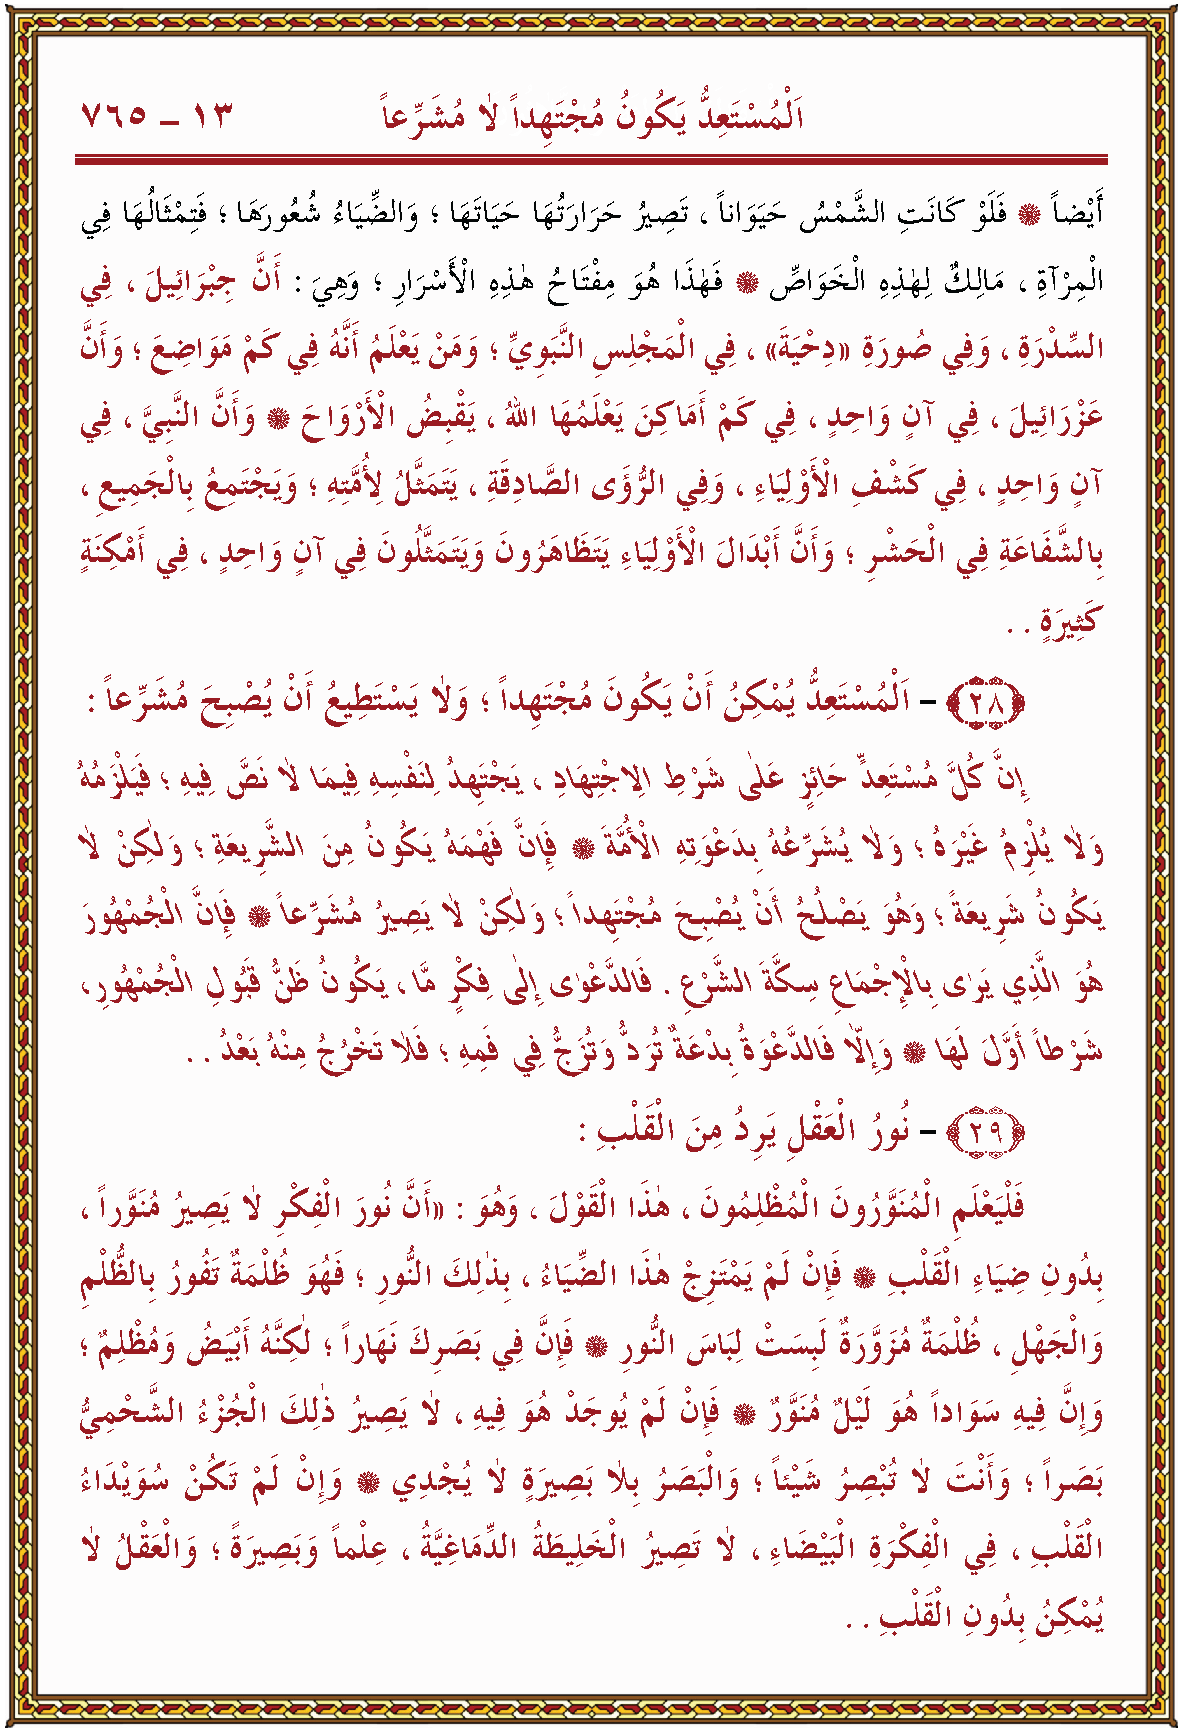 اَلْمُسْتَعِدُّ يَكُونُ مُجْتَهِداً لَا مُشَرِّعاً ١٣ ـ ٧٦٥
أَيْضاً ۞ فَلَوْ كَانَتِ الشَّمْسُ حَيَوَاناً ، تَصِيرُ حَرَارَتُهَا حَيَاتَهَا ؛ وَالضِّيَاءُ شُعُورَهَا ؛ فَتِمْثَالُهَا فِي
الْمِرْآةِ ، مَالِكٌ لِهٰذِهِ الْخَوَاصِّ ۞ فَهٰذَا هُوَ مِفْتَاحُ هٰذِهِ الْأَسْرَارِ ؛ وَهِيَ : أَنَّ جِبْرَائِيلَ ، فِي
السِّدْرَةِ ، وَفِي صُورَةِ «دِحْيَةَ» ، فِي الْمَجْلِسِ النَّبَوِيِّ ؛ وَمَنْ يَعْلَمُ أَنَّهُ فِي كَمْ مَوَاضِعَ ؛ وَأَنَّ
عَزْرَائِيلَ ، فِي آنٍ وَاحِدٍ ، فِي كَمْ أَمَاكِنَ يَعْلَمُهَا اللهُ ، يَقْبِضُ الْأَرْوَاحَ ۞ وَأَنَّ النَّبِيَّ ، فِي
آنٍ وَاحِدٍ ، فِي كَشْفِ الْأَوْلِيَاءِ ، وَفِي الرُّؤَى الصَّادِقَةِ ، يَتَمَثَّلُ لِأُمَّتِهِ ؛ وَيَجْتَمِعُ بِالْجَمِيعِ ،
بِالشَّفَاعَةِ فِي الْحَشْرِ ؛ وَأَنَّ أَبْدَالَ الْأَوْلِيَاءِ يَتَظَاهَرُونَ وَيَتَمَثَّلُونَ فِي آنٍ وَاحِدٍ ، فِي أَمْكِنَةٍ
كَثِيرَةٍ . .
﴿٢٨﴾ – اَلْمُسْتَعِدُّ يُمْكِنُ أَنْ يَكُونَ مُجْتَهِداً ؛ وَلَا يَسْتَطِيعُ أَنْ يُصْبِحَ مُشَرِّعاً :
إِنَّ كُلَّ مُسْتَعِدٍّ حَائِزٍ عَلَى شَرْطِ الِاجْتِهَادِ ، يَجْتَهِدُ لِنَفْسِهِ فِيمَا لَا نَصَّ فِيهِ ؛ فَيَلْزَمُهُ
وَلَا يُلْزِمُ غَيْرَهُ ؛ وَلَا يُشَرِّعُهُ بِدَعْوَتِهِ الْأُمَّةَ ۞ فَإِنَّ فَهْمَهُ يَكُونُ مِنَ الشَّرِيعَةِ ؛ وَلٰكِنْ لَا
يَكُونُ شَرِيعَةً ؛ وَهُوَ يَصْلُحُ أَنْ يُصْبِحَ مُجْتَهِداً ؛ وَلٰكِنْ لَا يَصِيرُ مُشَرِّعاً ۞ فَإِنَّ الْجُمْهُورَ
هُوَ الَّذِي يَرَى بِالْإِجْمَاعِ سِكَّةَ الشَّرْعِ . فَالدَّعْوَى إِلَى فِكْرٍ مَّا ، يَكُونُ ظَنُّ قَبُولِ الْجُمْهُورِ،
شَرْطاً أَوَّلَ لَهَا ۞ وَإِلَّا فَالدَّعْوَةُ بِدْعَةٌ تُرَدُّ وَتُزَجُّ فِي فَمِهِ ؛ فَلَا تَخْرُجُ مِنْهُ بَعْدُ . .
﴿٢٩﴾ – نُورُ الْعَقْلِ يَرِدُ مِنَ الْقَلْبِ :
فَلْيَعْلَمِ الْمُنَوَّرُونَ الْمُظْلِمُونَ ، هٰذَا الْقَوْلَ ، وَهُوَ : «أَنَّ نُورَ الْفِكْرِ لَا يَصِيرُ مُنَوَّراً ،
بِدُونِ ضِيَاءِ الْقَلْبِ ۞ فَإِنْ لَمْ يَمْتَزِجْ هٰذَا الضِّيَاءُ ، بِذٰلِكَ النُّورِ ؛ فَهُوَ ظُلْمَةٌ تَفُورُ بِالظُّلْمِ
وَالْجَهْلِ ، ظُلْمَةٌ مُزَوَّرَةٌ لَبِسَتْ لِبَاسَ النُّورِ ۞ فَإِنَّ فِي بَصَرِكَ نَهَاراً ؛ لٰكِنَّهُ أَبْيَضُ وَمُظْلِمٌ ؛
وَإِنَّ فِيهِ سَوَاداً هُوَ لَيْلٌ مُنَوَّرٌ ۞ فَإِنْ لَمْ يُوجَدْ هُوَ فِيهِ ، لَا يَصِيرُ ذٰلِكَ الْجُزْءُ الشَّحْمِيُّ
بَصَراً ؛ وَأَنْتَ لَا تُبْصِرُ شَيْئاً ؛ وَالْبَصَرُ بِلَا بَصِيرَةٍ لَا يُجْدِي ۞ وَإِنْ لَمْ تَكُنْ سُوَيْدَاءُ
الْقَلْبِ ، فِي الْفِكْرَةِ الْبَيْضَاءِ ، لَا تَصِيرُ الْخَلِيطَةُ الدِّمَاغِيَّةُ ، عِلْماً وَبَصِيرَةً ؛ وَالْعَقْلُ لَا
يُمْكِنُ بِدُونِ الْقَلْبِ . .